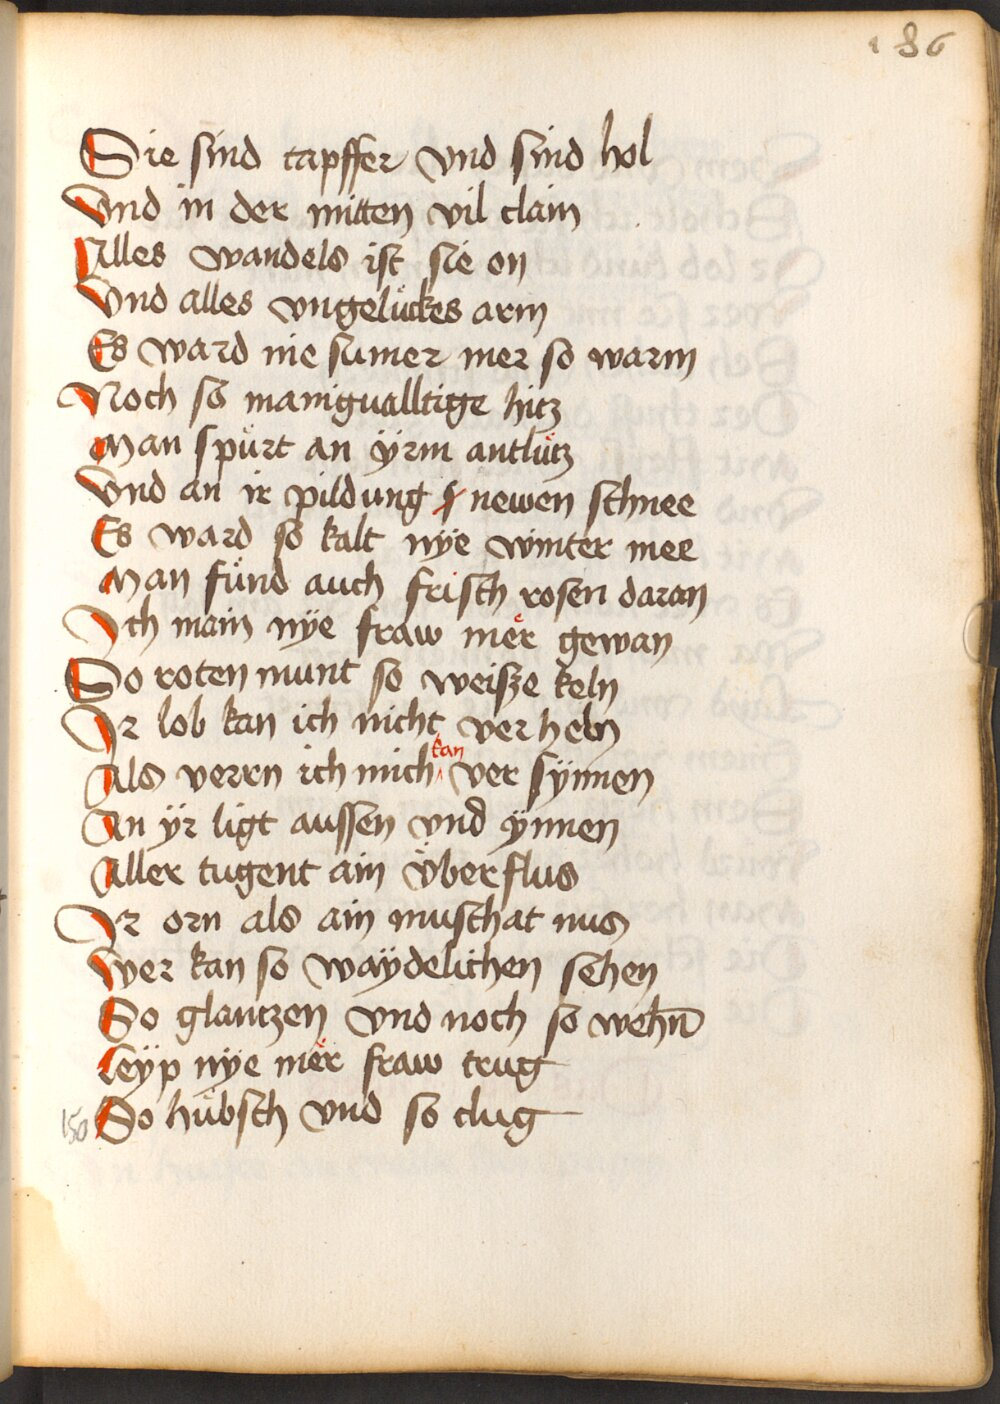 186
Sie sind tapffer vnd sind hol
Vnd in der mitten vil clain
Alles wandels ist sie on
Vnd alles vngelückes arm
Es ward nie sumer mer so warm
Noch so manigualltige hitz
Man spürt an ÿrm antlütz
Vnd an ir pildung newen schnee
Es ward so kalt nÿe winter mee
Man fünd auch frisch rosen daran
Ich main nÿe fraw mer gewan
So roten munt so weisze keln
Ir lob kan ich nicht ver heln
Als verrn ich mich kan ver sÿnnen
An ÿr ligt aussen vnd ÿnnen
Aller tugent ain v̈berflus
Ir orn als ain muschat nus
Wer kan so waÿdelichen sehen
So glantzen vnd noch so wehn̄
Leÿp nÿe mer fraw trug
150 So hübsch vnd so clug